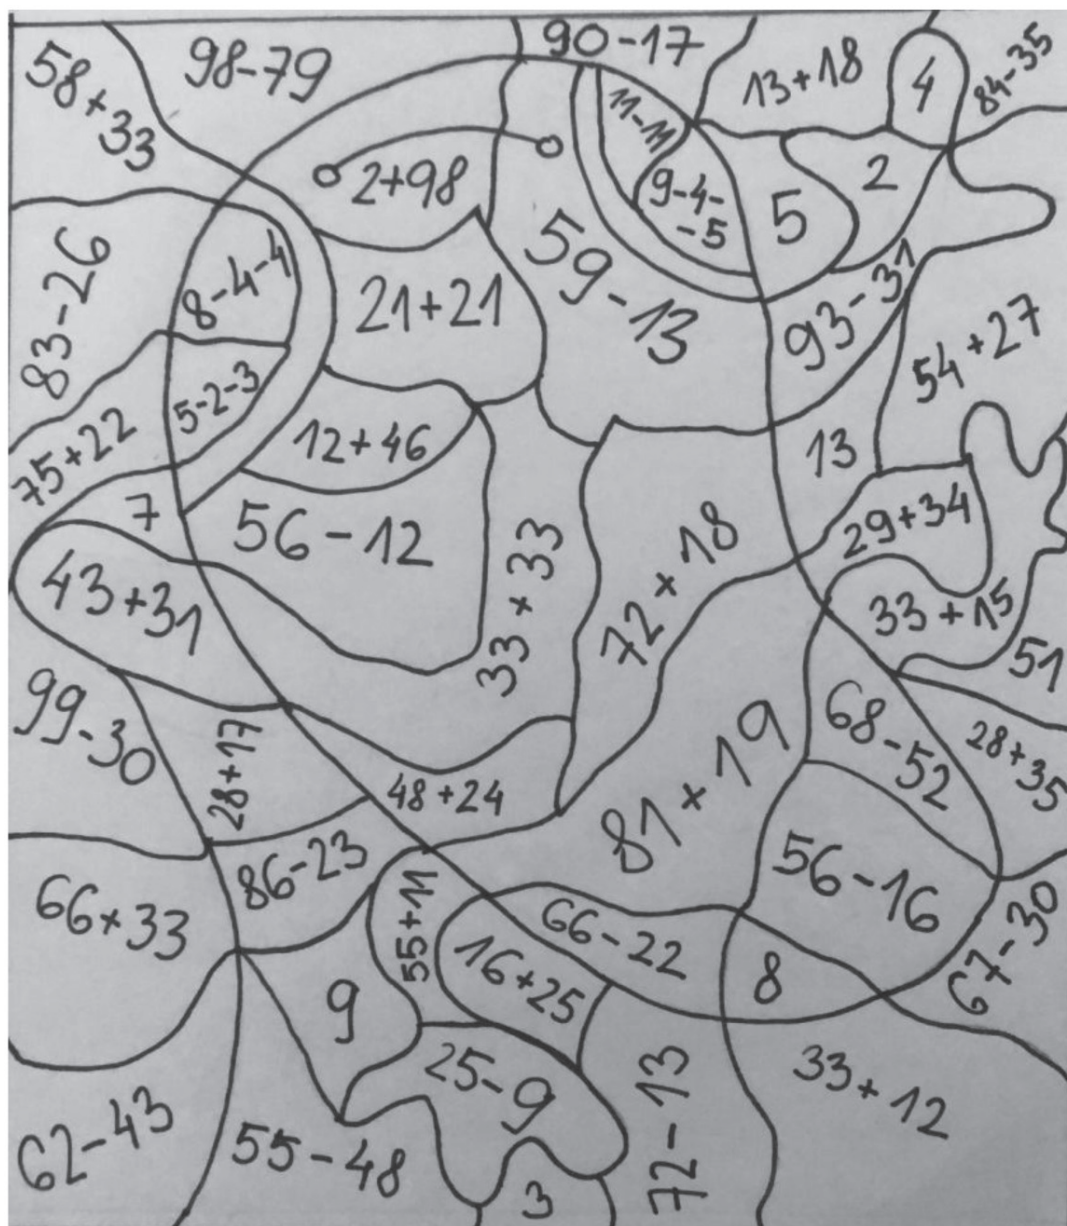 58+33
98-79
90-17
13+18
4
84-35
11-11
2+98
9-4-
-5
5
2
83-26
8-4-4
21+21
59-13
93-31
54+27
5-2-3
75+22
12+46
13
7
56-12
33+33
72+18
29+34
43+31
33+15
51
99-30
28+17
48+24
81+19
68-52
28+35
86-23
56-16
66+33
55+11
66-22
67-30
16+25
8
9
25-9
72-13
33+12
62-43
55-48
3